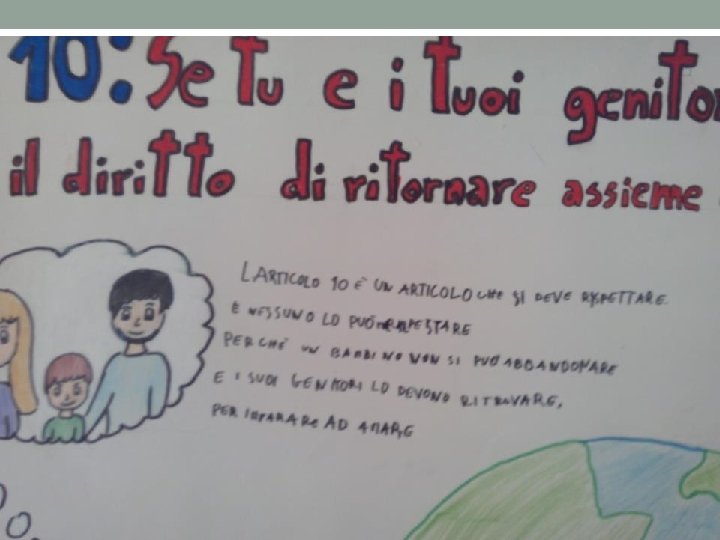 10: Se tu e i tuoi genito
il diritto di ritornare assieme
L'ARTICOLO 10 È UN ARTICOLO CHE SI DEVE RISPETTARE.
E NESSUNO LO PUÒ
PERCHÉ UN BAMBINO NON SI PUÒ ABBANDONARE
E I SUOI GENITORI LO DEVONO RITROVARE,
PER IMPARARE AD AMARE